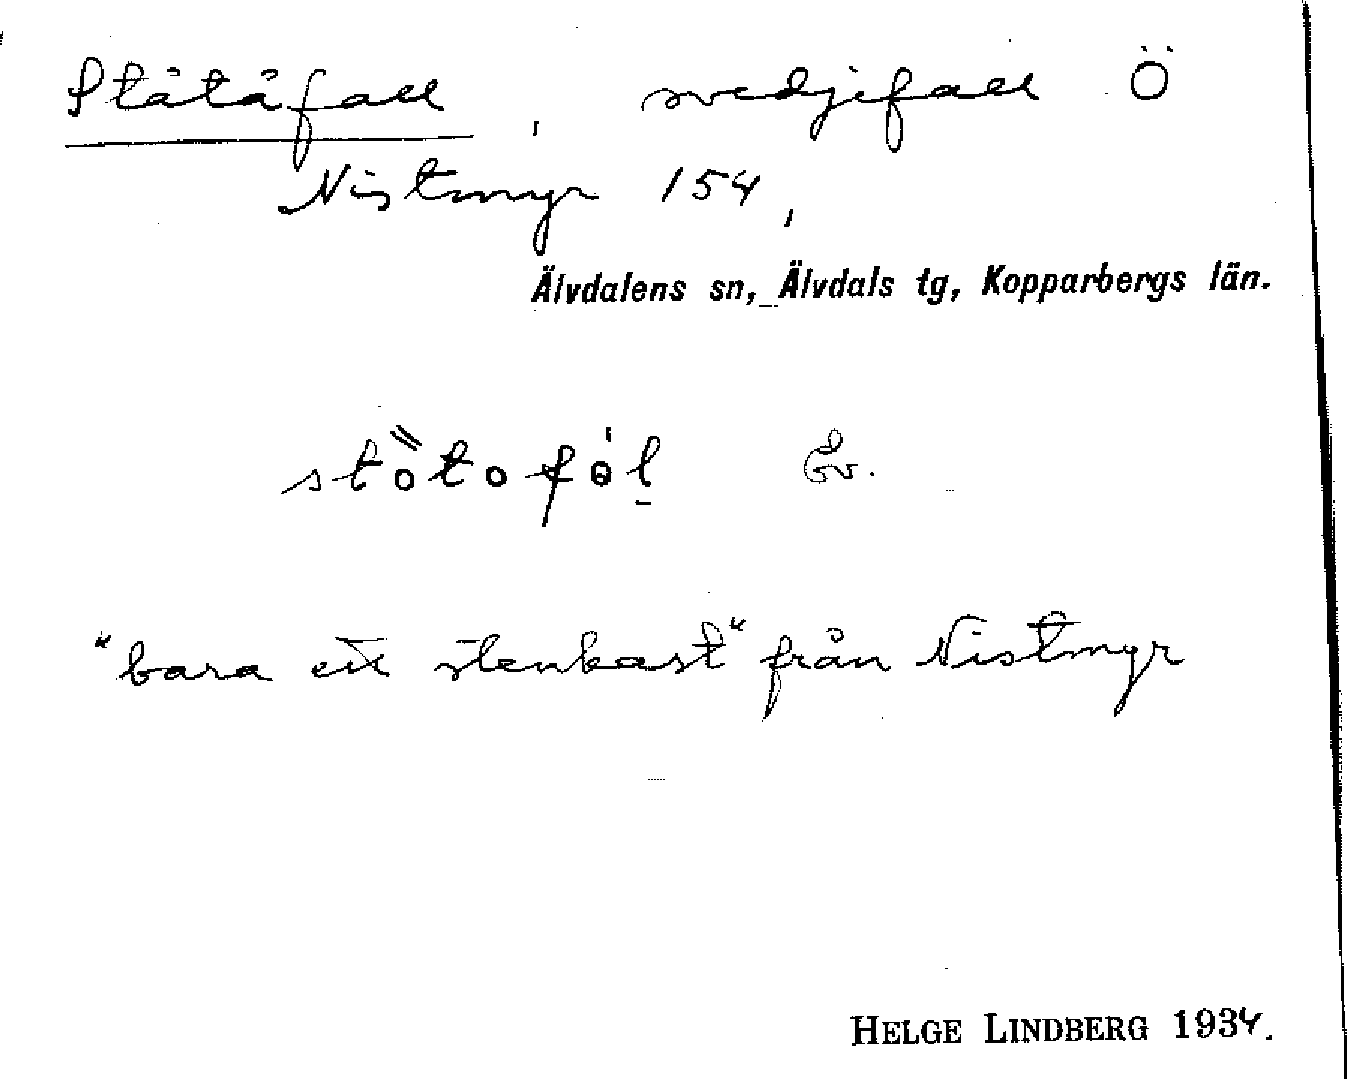 Ståtåfall, svedjefall Ö
Nistmyr 154,
Älvdalens sn, Älvdals tg, Kopparbergs län.
stò̀tofȯl̠ Ev.
"bara ett stenkast" från Nistmyr
HELGE LINDBERG 1934.